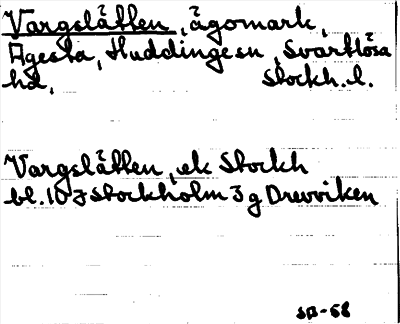 Vargslätten, ägomark,
Ågesta, Huddinge sn, Svartlösa
hd, Stockh. l.
Vargslätten, ek Stockh
bl. 10 J Stockholm 3 g Drevviken
SB-68